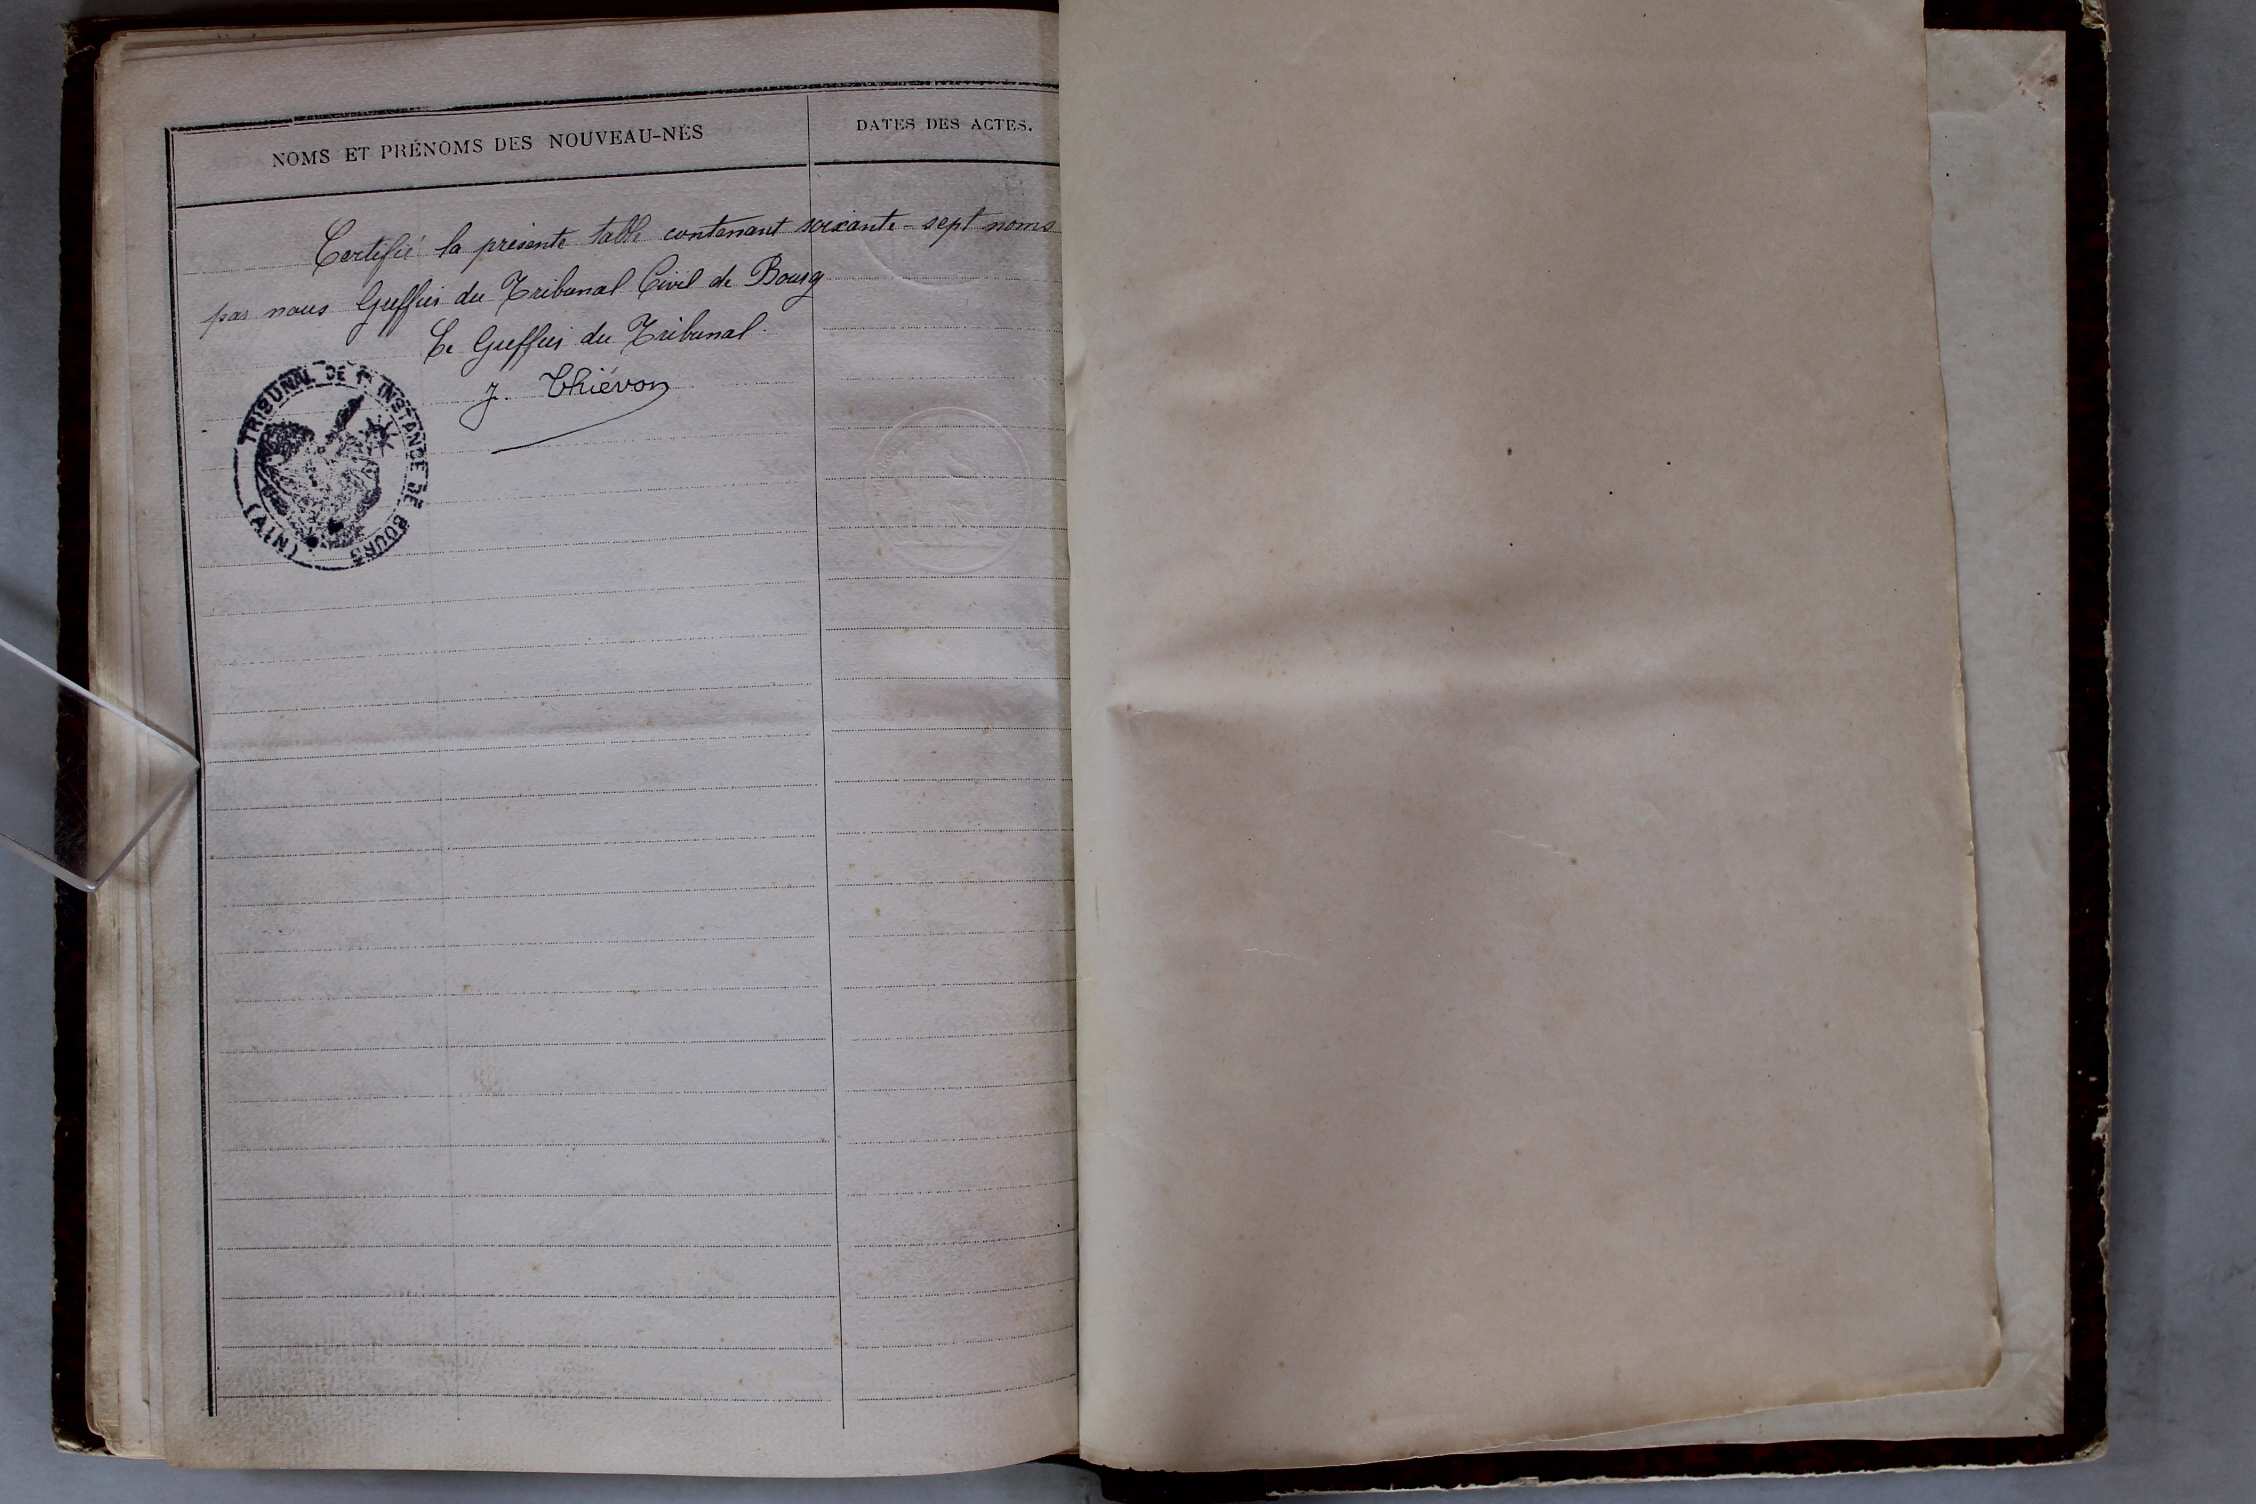 NOMS ET PRÉNOMS DES NOUVEAU-NÉS
DATES DES ACTES.
Certifié la présente table contenant soixante-sept noms
par nous Greffier du Tribunal Civil de Bourg
Le Greffier du Tribunal
J. Thiévon
TRIBUNAL DE 1re INSTANCE DE BOURG
(AIN)